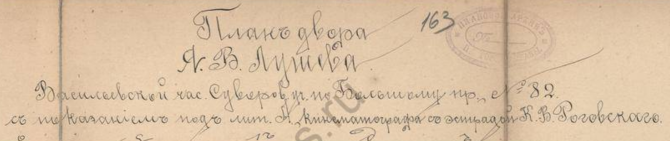 Планъ двора 163
Я. В. Лушева.
Василеевской час. Суворов. уч. по Большому пр. № 82
съ показаніемъ подъ лит. А, кинематографа съ эстрадой К. В. Роговскаго.